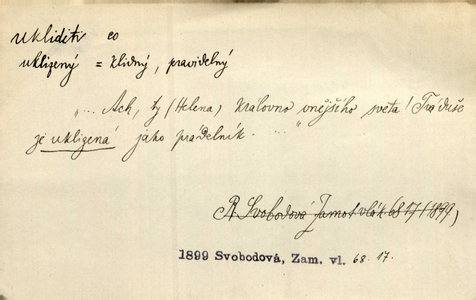 ukliditi co
uklizený = klidný, pravidelný
"... Ach, ty (Helena) královno vnějšího světa! Tvá duše
je uklizená jako prádelník. ... "
R. Svobodová Zamotvlák 68 17 (1899)
1899 Svobodová, Zam. vl. 68. 17.